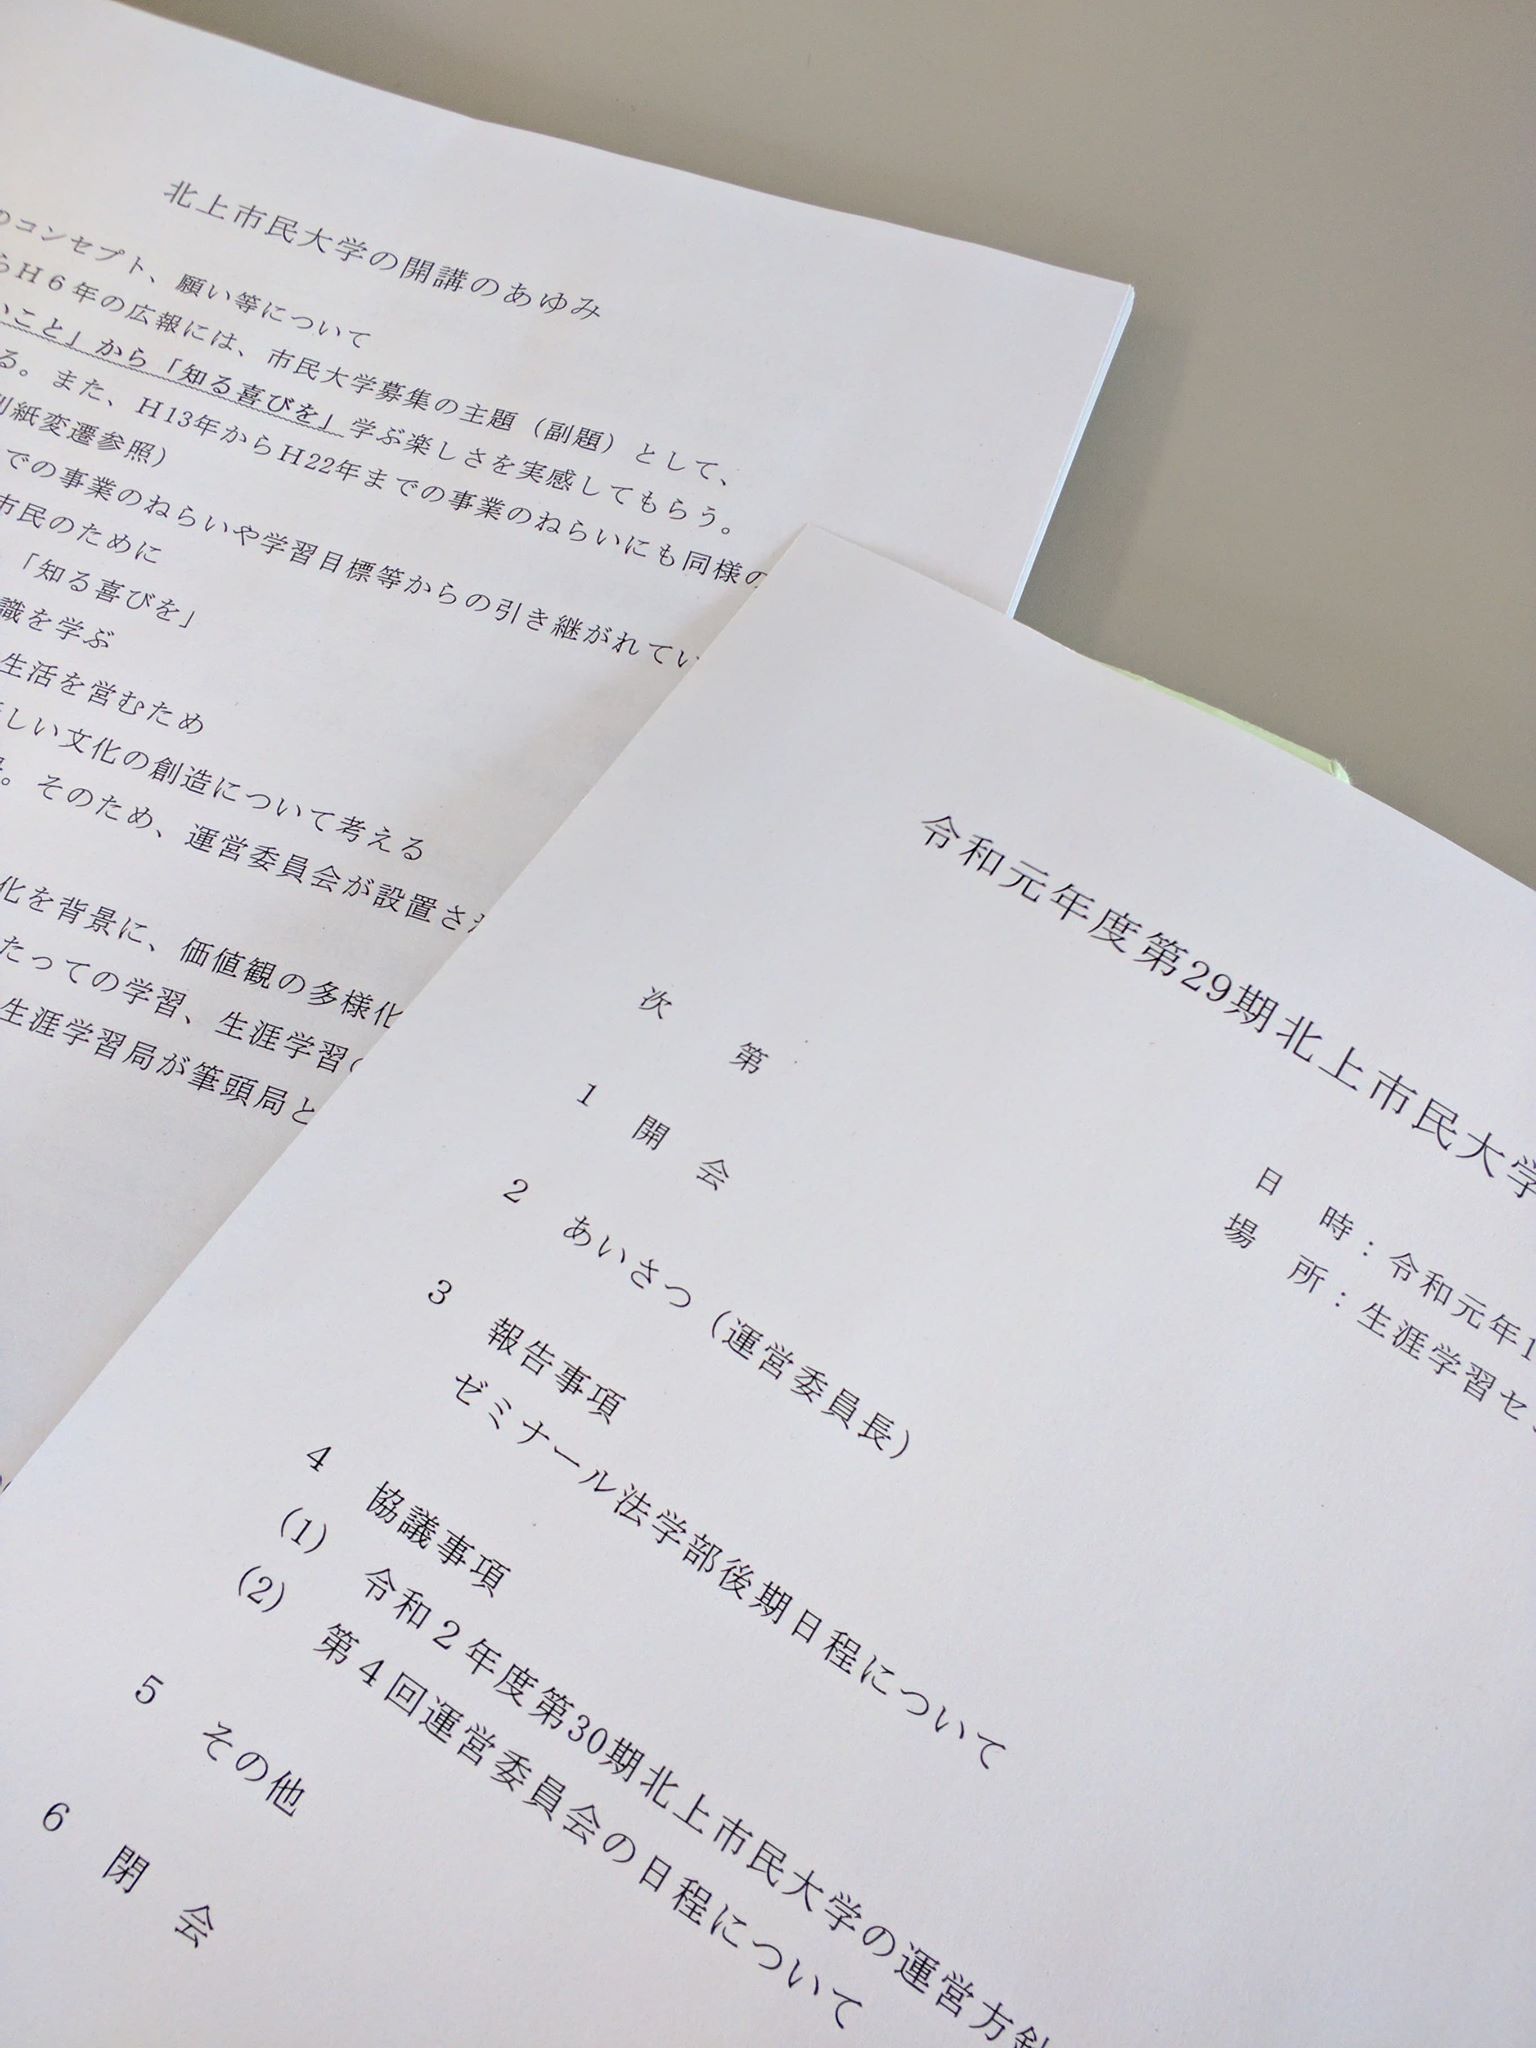 北上市民大学の開講のあゆみ
のコンセプト、願い等について
らH6年の広報には、市民大学募集の主題（副題）として、
いこと」から「知る喜びを」学ぶ楽しさを実感してもらう。
る。また、H13年からH22年までの事業のねらいにも同様の
別紙変遷参照）
での事業のねらいや学習目標等からの引き継がれてい
市民のために
「知る喜びを」
識を学ぶ
生活を営むため
しい文化の創造について考える
。そのため、運営委員会が設置され
化を背景に、価値観の多様化
たっての学習、生涯学習(
生涯学習局が筆頭局と
令和元年度第29期北上市民大学
日 時：令和元年1
場 所：生涯学習セン
次 第
1 開 会
2 あいさつ（運営委員長）
3 報告事項
ゼミナール法学部後期日程について
4 協議事項
(1) 令和2年度第30期北上市民大学の運営方針
(2) 第4回運営委員会の日程について
5 その他
6 閉 会